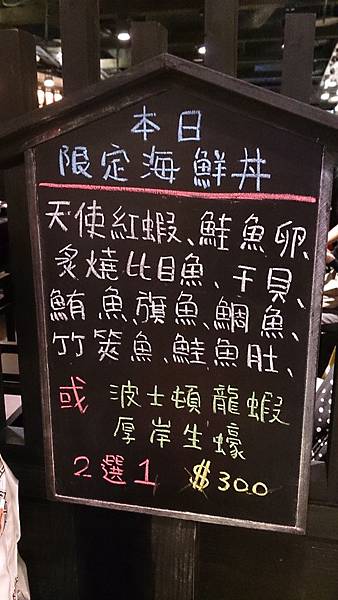 本日
限定海鮮丼
天使紅蝦、鮭魚卵、
炙燒比目魚、干貝、
鮪魚、旗魚、鯛魚、
竹筴魚、鮭魚肚、
或 波士頓龍蝦
厚岸生蠔
2選1 $300